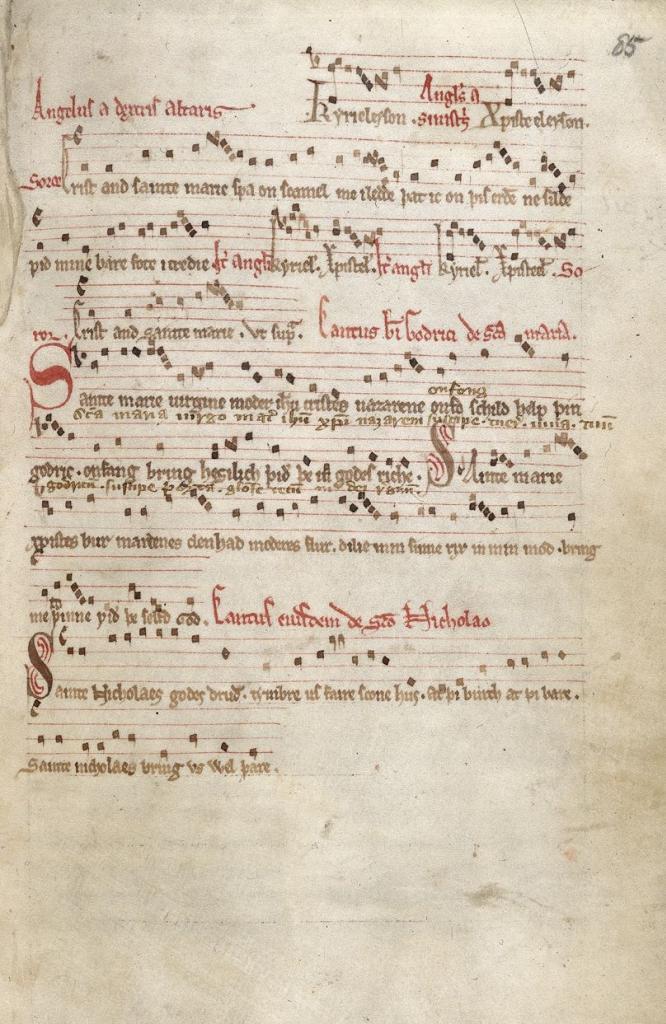 85
Angelus a dextris altaris Kyrieleyson. Angls a sinistris Xpiste eleyson.
Soror Crist and sainte marie spa on scamel me iledde þat ic on þis erðe ne silde
pid mine bare fote itredie. kt angli Kyriel. Xpistel. kt angli Kyriel. Xpistel. So
ror. Crist and sainte marie. vt sup. Cantus bi Godrici de sca maria.
onfong
Sainte marie uirgine moder ihu cristes nazarene onfo schild help þin
Sca maria virgo mater ihu xpi nazareni suscipe. tuum
godric. onfang bring hegilich pid þe in godes riche. Sainte marie
godricum. suscipe
xpistes bur maidenes clenhad moderes flur. dilie min sinne rix in min mod. bring
me to pinne pid þe selfd god. Cantus eiusdem de sco Nicholao
Sainte Nicholaes godes drud. tymbre us faire scone hus. At þi burth at þi bare.
Sainte nicholaes bring vs wel þare.